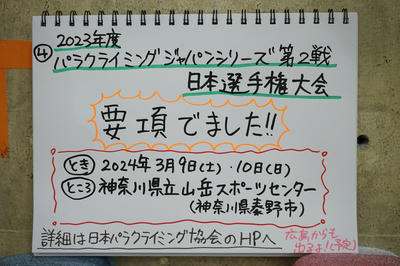 ④ 2023年度
パラクライミングジャパンシリーズ第2戦
日本選手権大会
要項でました!!
とき 2024年3月9日(土)・10日(日)
ところ 神奈川県立山岳スポーツセンター
(神奈川県秦野市)
詳細は日本パラクライミング協会のHPへ
広島からも
出るよ!(予定)